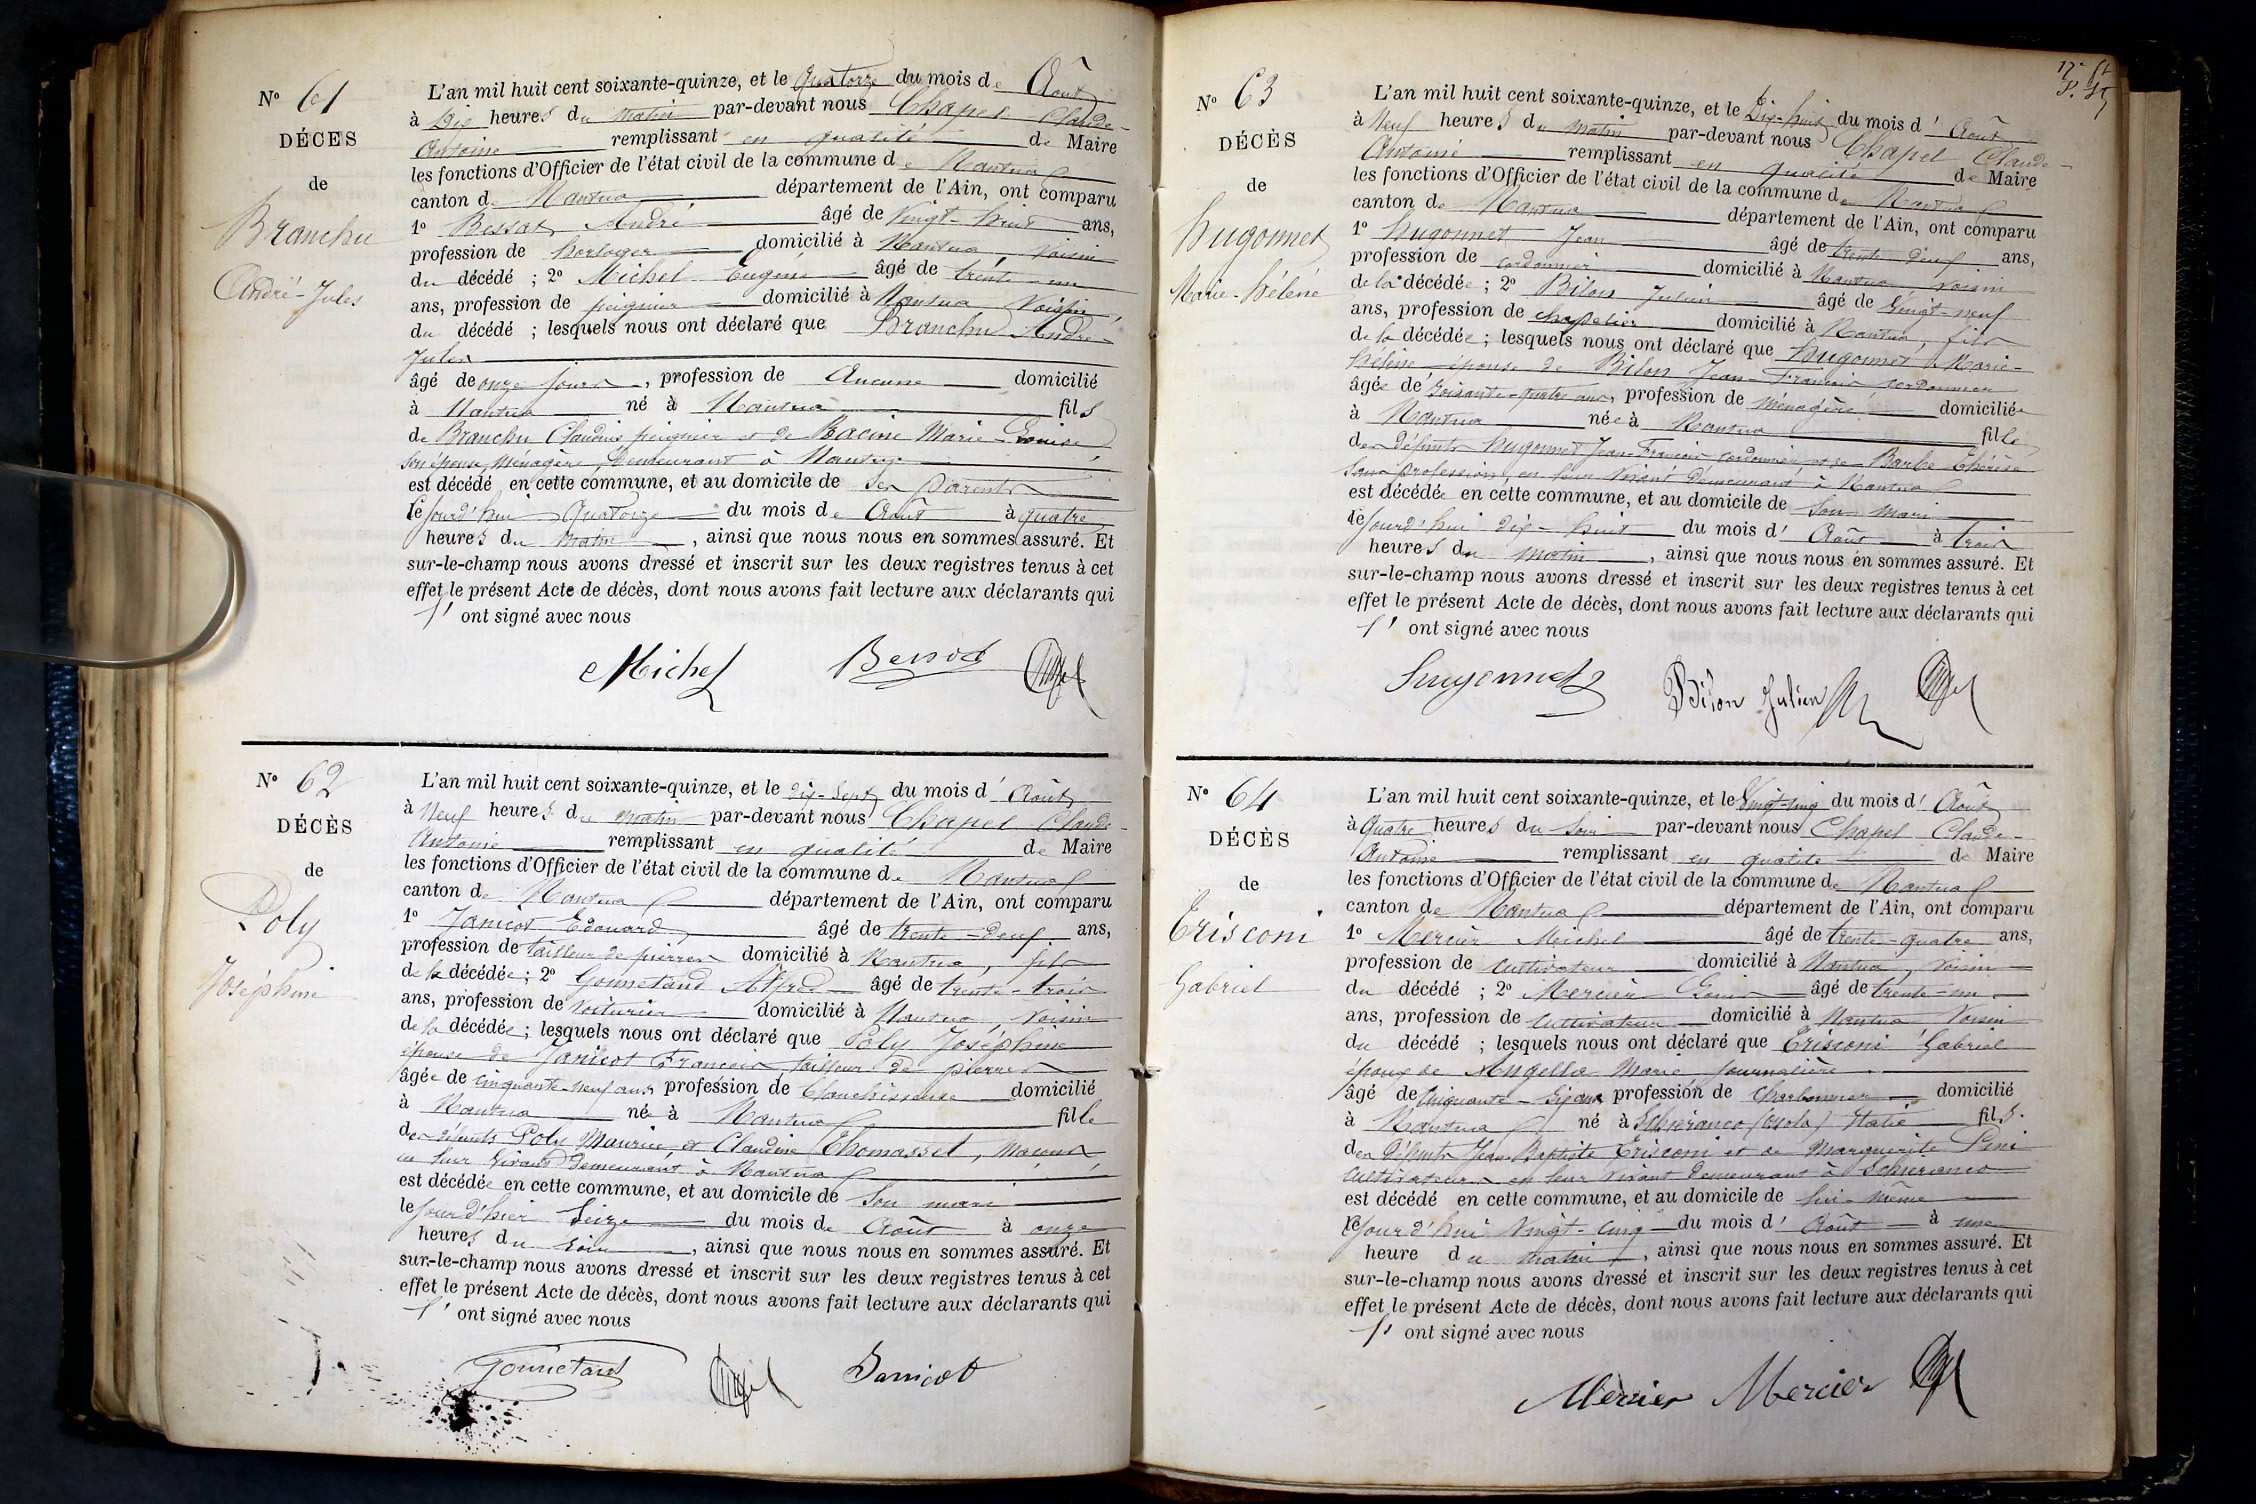 N° 61
DÉCES
de
Branchu
André-Jules
L'an mil huit cent soixante-quinze, et le Quatorze du mois de Août
à Dix heures du matin par-devant nous Chapel Claude-
Antoine remplissant en qualité de Maire
les fonctions d'Officier de l'état civil de la commune de Nantua
canton de Nantua département de l'Ain, ont comparu
1° Bessat André âgé de Vingt-huit ans,
profession de horloger domicilié à Nantua, Voisin
du décédé ; 2° Michel Eugène âgé de trente-un
ans, profession de peignier domicilié à Nantua Voisin,
du décédé ; lesquels nous ont déclaré que Branchu André-
Jules
âgé de onze jours, profession de Aucune domicilié
à Nantua né à Nantua fils
de Branchu Claudius peignier et de Racine Marie-Louise
son épouse, Ménagère, Demeurant à Nantua
est décédé en cette commune, et au domicile de ses parents
le jourd'hui Quatorze du mois de Août à quatre
heures du matin, ainsi que nous nous en sommes assuré. Et
sur-le-champ nous avons dressé et inscrit sur les deux registres tenus à cet
effet le présent Acte de décès, dont nous avons fait lecture aux déclarants qui
l' ont signé avec nous
Michel Bessat
N° 62
DÉCÈS
de
Poly
Joséphine
L'an mil huit cent soixante-quinze, et le dix-Sept du mois d' Août
à Neuf heures du matin par-devant nous Chapel Claude-
Antoine remplissant en qualité de Maire
les fonctions d'Officier de l'état civil de la commune de Nantua
canton de Nantua département de l'Ain, ont comparu
1° Janicot Edouard, âgé de trente-deux ans,
profession de tailleur de pierres domicilié à Nantua, fils
de la décédée ; 2° Gonnetand Alfred âgé de trente-trois
ans, profession de Voiturier domicilié à Nantua, Voisin
de la décédée ; lesquels nous ont déclaré que Poly Joséphine
épouse de Janicot François tailleur de pierres
âgée de cinquante-neuf ans profession de blanchisseuse domicilié
à Nantua née à Nantua fille
des défunts Poly Maurice, et Claudine Thomasset, Maçons
en leur vivant demeurant à Nantua
est décédée en cette commune, et au domicile de son mari
le jour d'hier Seize du mois de Août à onze
heures du soir, ainsi que nous nous en sommes assuré. Et
sur-le-champ nous avons dressé et inscrit sur les deux registres tenus à cet
effet le présent Acte de décès, dont nous avons fait lecture aux déclarants qui
l' ont signé avec nous
Gonnetand Janicot
N° 63
DÉCÈS
de
Hugonnet
Marie-Hélène
L'an mil huit cent soixante-quinze, et le Dix-huit du mois d' Août
à Neuf heures du matin par-devant nous Chapel Claude-
Antoine remplissant en qualité de Maire
les fonctions d'Officier de l'état civil de la commune de Nantua
canton de Nantua département de l'Ain, ont comparu
1° Hugonnet Jean âgé de trente-deux ans,
profession de cordonnier domicilié à Nantua, voisin
de la décédée ; 2° Bilon Julien âgé de Vingt-neuf
ans, profession de chapelier domicilié à Nantua, fils
de la décédée ; lesquels nous ont déclaré que Hugonnet Marie-
Hélène épouse de Bilon Jean-François cordonnier
âgée de soixante-quatre ans, profession de ménagère domiciliée
à Nantua née à Nantua fille
des défunts Hugonnet Jean-François cordonnier, et de Barbe Thérèse
sans profession, en leur vivant demeurant à Nantua
est décédée en cette commune, et au domicile de son mari
le jourd'hui dix-huit du mois d' Août à trois
heures du matin, ainsi que nous nous en sommes assuré. Et
sur-le-champ nous avons dressé et inscrit sur les deux registres tenus à cet
effet le présent Acte de décès, dont nous avons fait lecture aux déclarants qui
l' ont signé avec nous
Hugonnet Bilon Julien
N° 64
DÉCÈS
de
Crisconi
Gabriel
L'an mil huit cent soixante-quinze, et le Vingt-cinq du mois d' Août
à Quatre heures du soir par-devant nous Chapel Claude-
Antoine remplissant en qualité de Maire
les fonctions d'Officier de l'état civil de la commune de Nantua
canton de Nantua département de l'Ain, ont comparu
1° Mercier Michel âgé de trente-quatre ans,
profession de cultivateur domicilié à Nantua, voisin
du décédé ; 2° Mercier Louis âgé de trente-un
ans, profession de cultivateur domicilié à Nantua Voisin
du décédé ; lesquels nous ont déclaré que Crisconi Gabriel
époux de Angella Marie journalière
âgé de Cinquante-six ans profession de charbonnier domicilié
à Nantua né à Schieranco (Osola) Italie fils
des défunts Jean-Baptiste Crisconi et de Marguerite Pini
cultivateurs en leur vivant demeurant à Schieranco
est décédé en cette commune, et au domicile de lui-même
le jour d'hui Vingt-cinq du mois d' Août à une
heure du matin, ainsi que nous nous en sommes assuré. Et
sur-le-champ nous avons dressé et inscrit sur les deux registres tenus à cet
effet le présent Acte de décès, dont nous avons fait lecture aux déclarants qui
l' ont signé avec nous
Mercier Mercier